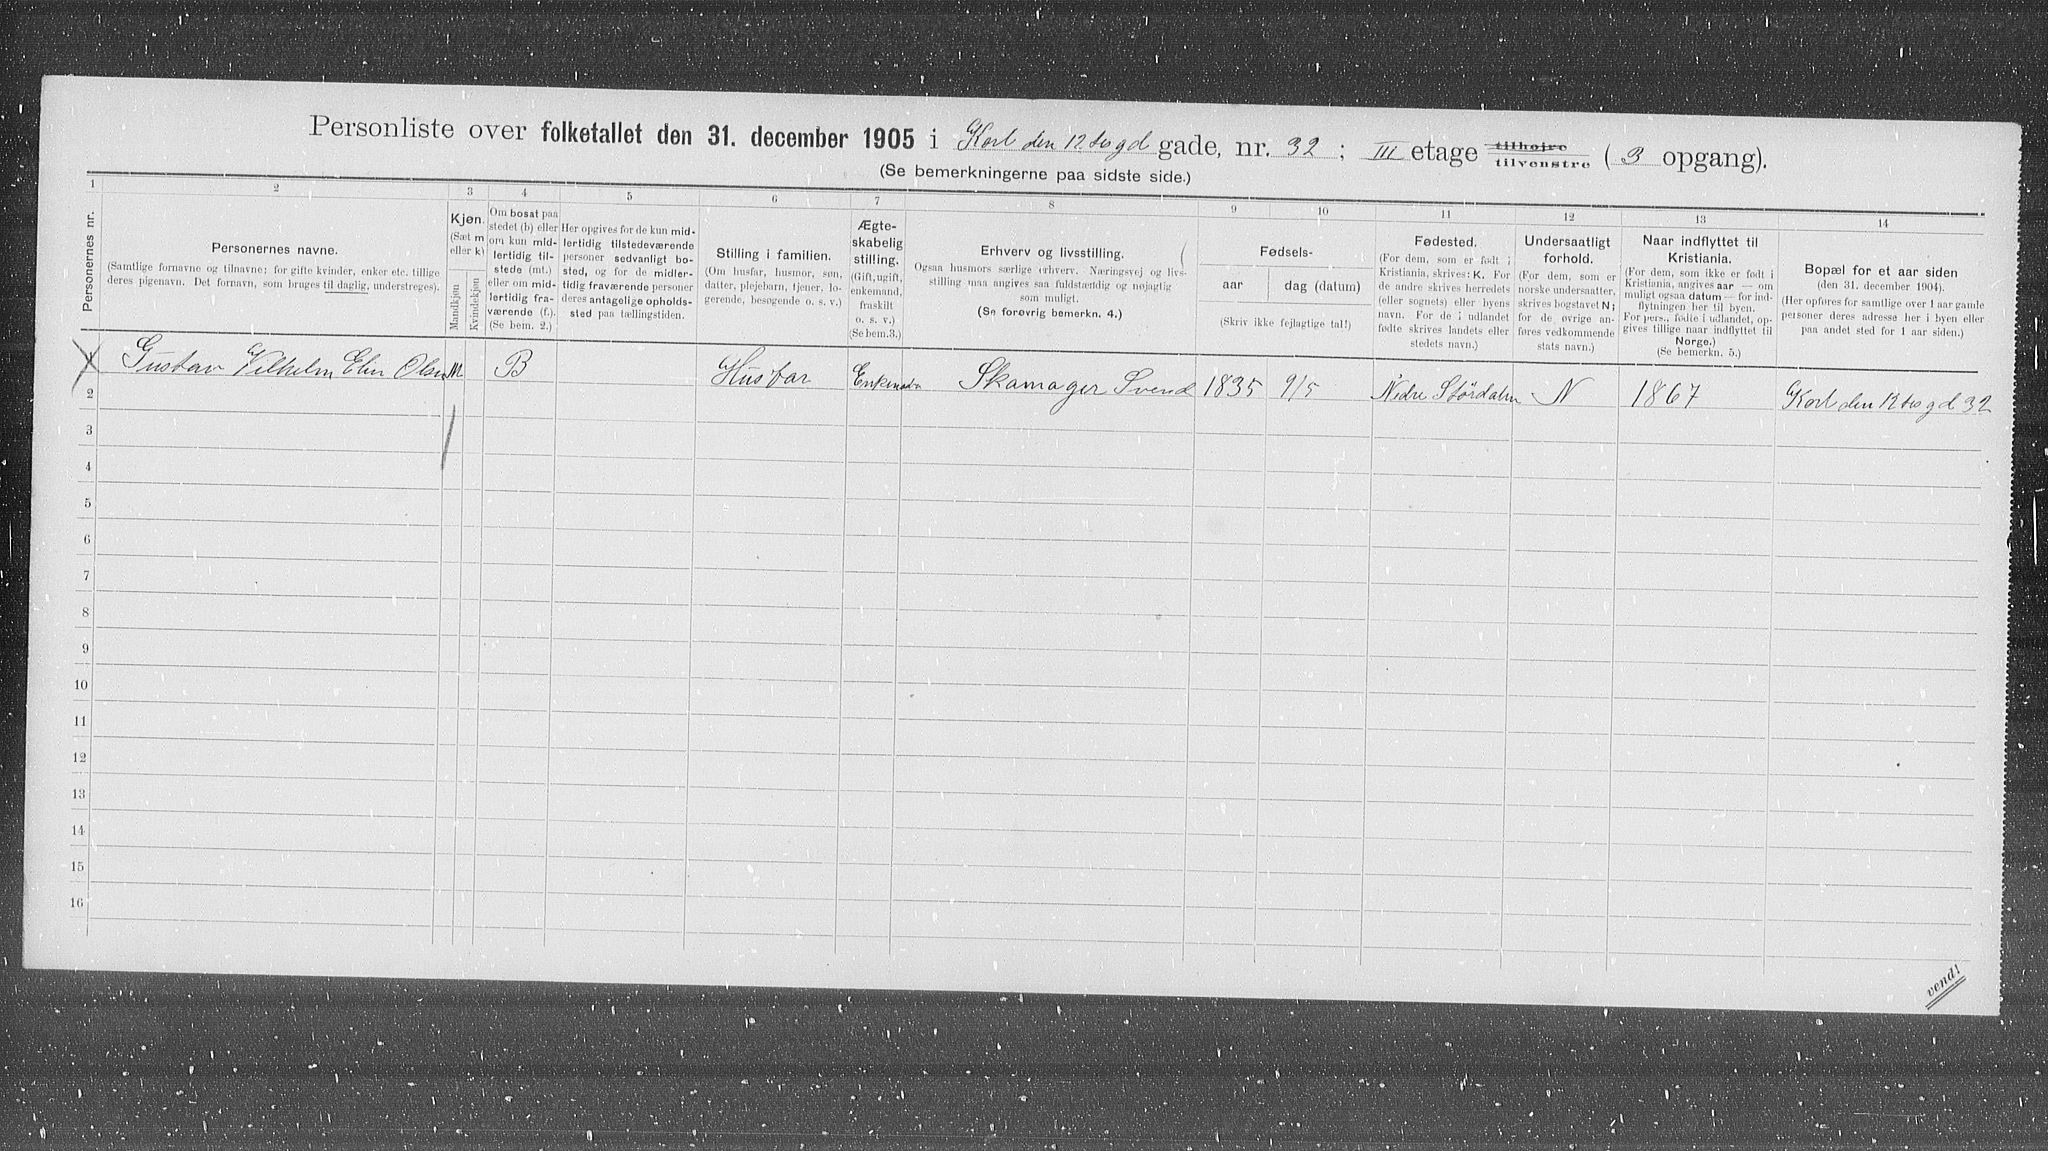 Personliste over folketallet den 31. december 1905 i Karl den 12. tes gd gade, nr. 32 ; III etage tilhøjre tilvenstre ( 3 opgang).
(Se bemerkningerne paa sidste side.)
1 2 3 4 5 6 7 8 9 10 11 12 13 14
Personernes nr.
Personernes navne.
(Samtlige fornavne og tilnavne; for gifte kvinder, enker etc. tillige
deres pigenavn. Det fornavn, som bruges til daglig, understreges).
Kjøn.
(Sæt m
eller k)
Mandkjøn
Kvindekjøn
Om bosat paa
stedet (b) eller
om kun mid-
lertidig til-
stede (mt.)
eller om mid-
lertidig fra-
værende (f.).
(Se bem. 2.)
Her opgives for de kun mid-
lertidig tilstedeværende
personer sedvanligt bo-
sted, og for de midler-
tidig fraværende personer
deres antagelige opholds-
sted paa tællingstiden.
Stilling i familien.
(Om husfar, husmor, søn,
datter, plejebarn, tjener, lo-
gerende, besøgende o. s. v.)
Ægte-
skabelig
stilling.
(Gift, ugift,
enkemand,
fraskilt
o. s. v.)
(Se bem. 3.)
Erhverv og livsstilling.
Ogsaa husmors særlige erhverv. Næringsvej og livs-
stilling maa angives saa fuldstændig og nøjagtig
som muligt.
(Se forøvrig bemerkn. 4.)
Fødsels-
aar
dag (datum)
(Skriv ikke fejlagtige tal!)
Fødested.
(For dem, som er født i
Kristiania, skrives: K. For
de andre skrives herredets
(eller sognets) eller byens
navn. For de i udlandet
fødte skrives landets eller
stedets navn.)
Undersaatligt
forhold.
(For dem, som er
norske undersaatter,
skrives bogstavet N;
for de øvrige an-
føres vedkommende
stats navn.)
Naar indflyttet til
Kristiania.
(For dem, som ikke er født i
Kristiania, angives aar — om
muligt ogsaa datum — for ind-
flytningen her til byen.
For pers., fødte i udlandet, op-
gives tillige naar indflyttet til
Norge.)
(Se bemerkn. 5.)
Bopæl for et aar siden
(den 31. december 1904).
(Her opføres for samtlige over 1 aar gamle
personer deres adresse her i byen eller
paa andet sted for 1 aar siden.)
1 Gustav Vilhelm Elin Olsen M B Husfar Enkemand Skamager Svend 1835 9/5 Nedre Størdalen N 1867 Karl den 12 tes gd 32
2
3
4
5
6
7
8
9
10
11
12
13
14
15
16
vend!